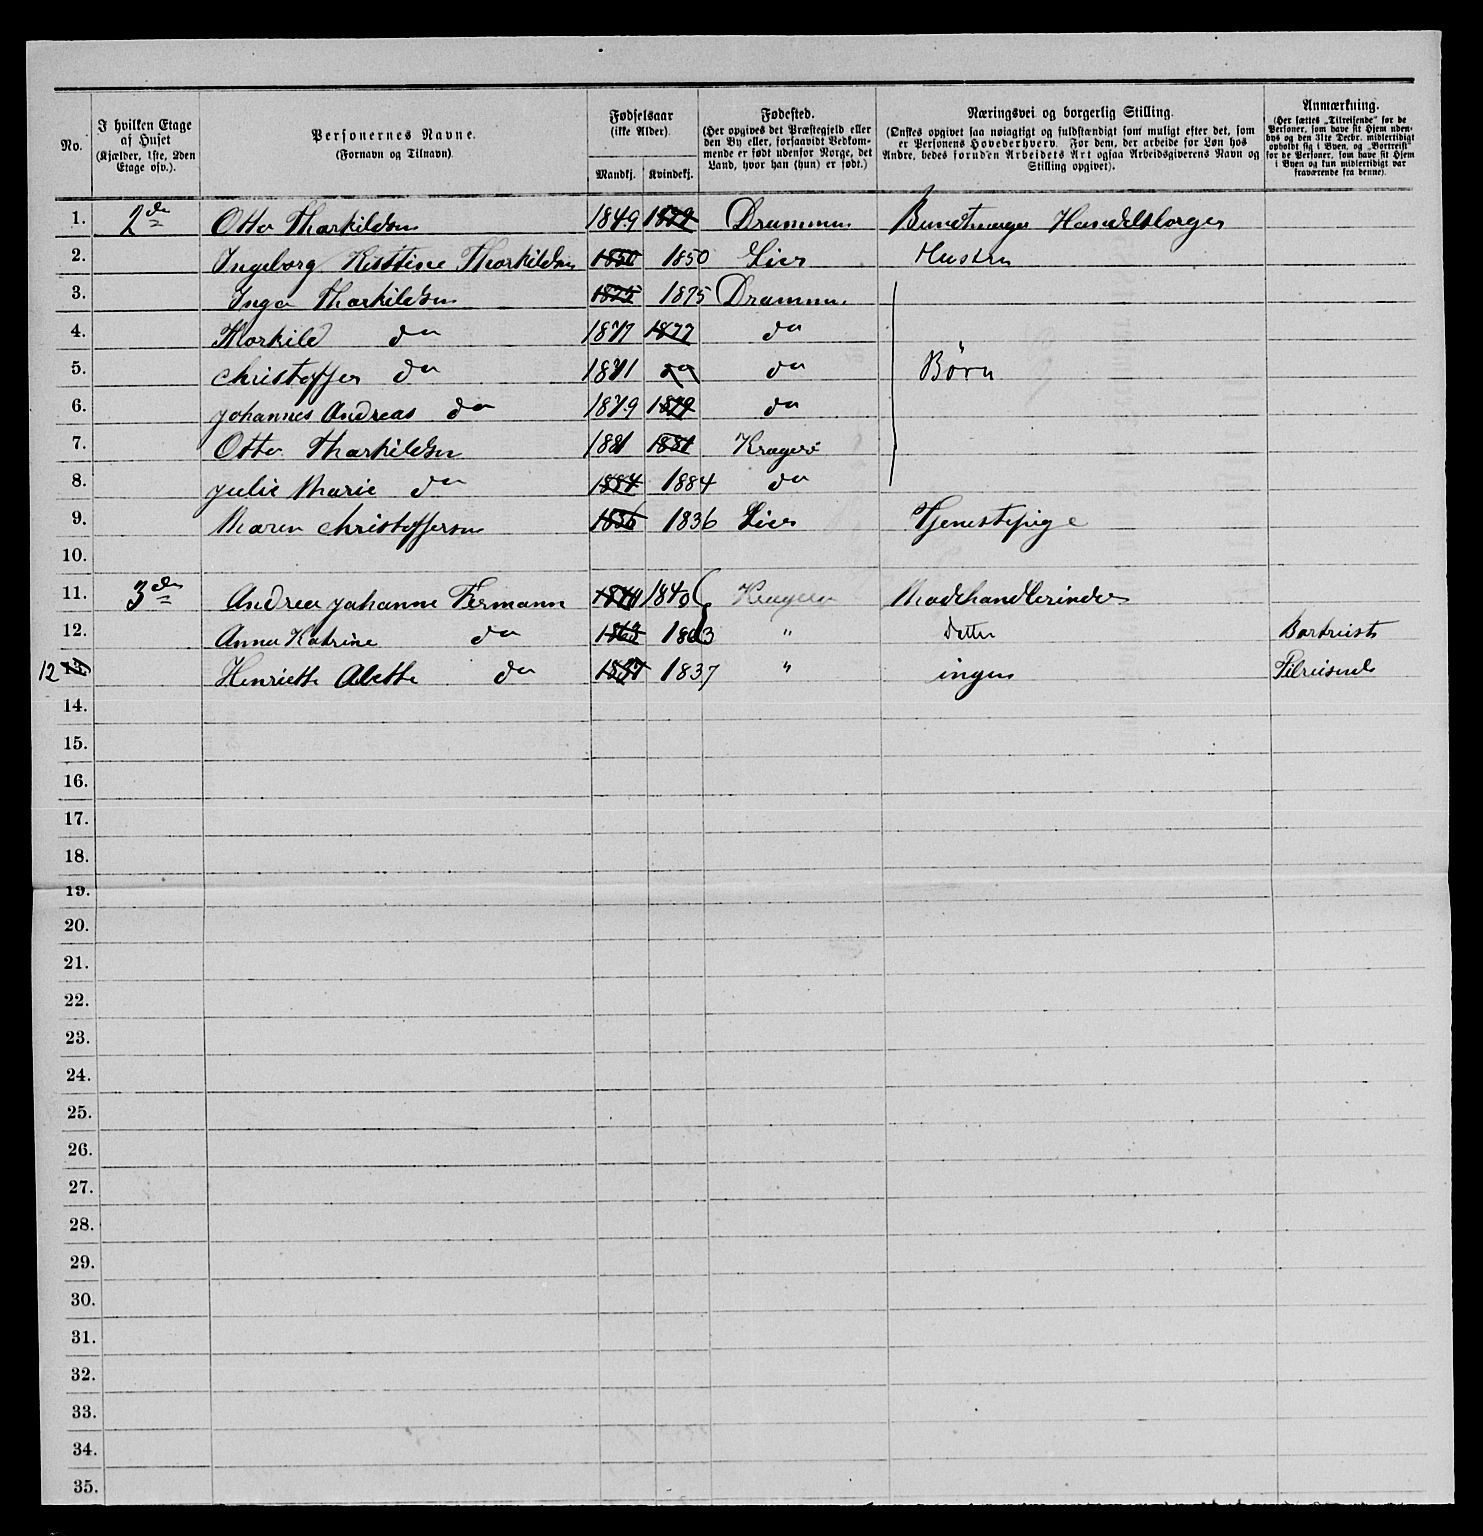 No.
I hvilken Etage af Huset (Kjælder, 1ste, 2den Etage osv.).
Personernes Navne. (Fornavn og Tilnavn)
Fødselsaar (ikke Alder). Mandkj. Kvindekj.
Fødested. (Her opgives det Præstegjeld eller den By eller, forsaavidt Vedkommende er født udenfor Norge, det Land, hvor han (hun) er født.)
Næringsvei og borgerlig Stilling. (Ønskes opgivet saa nøiagtigt og fuldstændigt som muligt efter det, som er Personens Hovederhverv. For dem, der arbeide for Løn hos Andre, bedes foruden Arbeidets Art ogsaa Arbeidsgiverens Navn og Stilling opgivet).
Anmærkning. (Her sættes „Tilreisende" for de Personer, som have sit Hjem udenbys og den 31te Decbr. midlertidigt opholdt sig i Byen, og „Bortreist" for de Personer, som have sit Hjem i Byen og kun midlertidigt var fraværende fra denne).
1. 2de Otto Thorkildsen 1849 Drammen Bundtmager Handelsborger
2. Ingeborg Kisttine Thorkildsen 1850 1850 Lier Hustru
3. Inga Thorkildsen 1875 1875 Drammen
4. Thorkild do 1877 1877 do
5. Christoffer do 1871 do do Børn
6. Johannes Andreas do 1879 1879 do
7. Otto Thorkildsen 1881 1881 Kragerø
8. Julie Marie do 1884 1884 do
9. Maren Christoffersen 1836 1836 Lier Tjenestepige
10.
11. 3de Andrea Johanne Fermann 1840 1840 Kragerø Modehandlerinde
12. Anna Katrine do 1863 1863 " Datter Bortreist
12 13. Henriette Alette do 1837 1837 " ingen Tilreisende
14.
15.
16.
17.
18.
19.
20.
21.
22.
23.
24.
25.
26.
27.
28.
29.
30.
31.
32.
33.
34.
35.